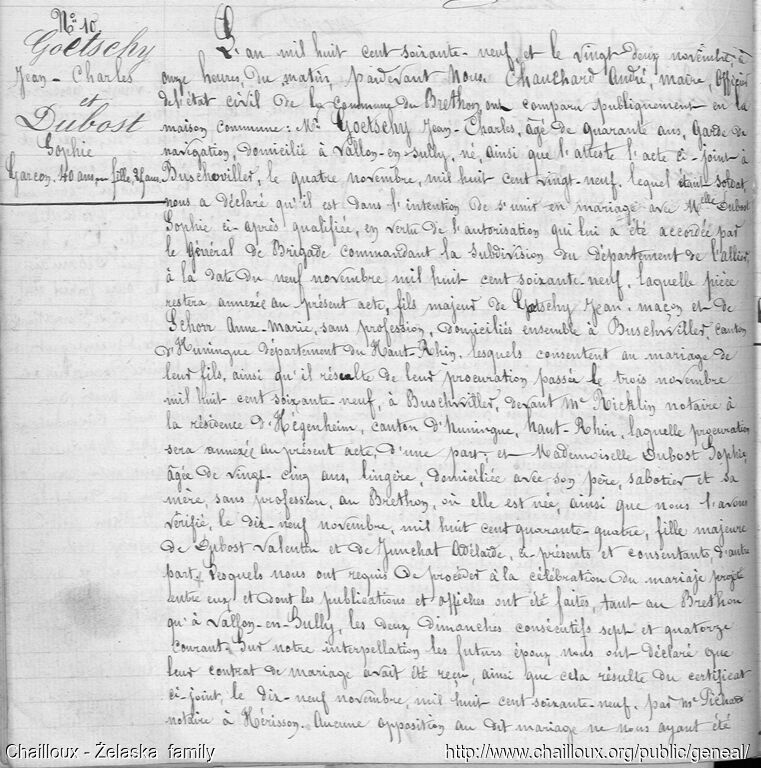 N° 10
Goetschy
Jean-Charles
et
Dubost
Sophie
Garçon, 40 ans, fille, 25 ans
L'an mil huit cent soixante-neuf, et le vingt deux novembre, à
onze heures, du matin, pardevant Nous Chauchard André, maire, officier
de l'état civil de la commune du Brethon, ont comparu publiquement en la
maison commune : Mr Goetschy Jean-Charles, âgé de quarante ans, Garde de
navigation, domicilié à Vallon-en-Sully, né, ainsi que l'atteste l'acte ci-joint à
Buschwiller, le quatre novembre, mil huit cent vingt-neuf. lequel étant soldat,
nous a déclaré qu'il est dans l'intention de s'unir en mariage avec Melle Dubost
Sophie ci-après qualifiée, en vertu de l'autorisation qui lui a été accordée par
le Général de Brigade commandant la subdivision du département de l'allier,
à la date du neuf novembre mil huit cent soixante-neuf, laquelle pièce
restera annexée au présent acte, fils majeur de Goetschy Jean, maçon et de
Schorr Anne-Marie, sans profession, domiciliés ensemble à Buschwiller, canton
d'Huningue département du Haut-Rhin, lesquels consentent au mariage de
leur fils, ainsi qu'il résulte de leur procuration passée le trois novembre
mil huit cent soixante-neuf, à Buschwiller, devant Me Ricklin notaire à
la résidence d'Hégenheim, canton d'huningue, haut-Rhin, laquelle procuration
sera annexée au présent acte, d'une part, et Mademoiselle Dubost Sophie,
âgée de vingt-cinq ans, lingère, domiciliée avec son père, sabotier et sa
mère, sans profession, au Brethon, où elle est née, ainsi que nous l'avons
vérifié, le dix-neuf novembre, mil huit cent quarante-quatre, fille majeure
de Dubost Valentin et de Junchat Adélaïde, ci-présents et consentants, d'autre
part, Lesquels nous ont requis de procéder à la célébration du mariage projeté
entre eux et dont les publications et affiches ont été faites, tant au Brethon
qu'à Vallon-en-Sully, les deux dimanches consécutifs sept et quatorze
courant. Sur notre interpellation les futurs époux nous ont déclaré que
leur contrat de mariage avait été reçu, ainsi que cela résulte du certificat
ci-joint, le dix-neuf novembre, mil huit cent soixante-neuf, par Me Pichard
notaire à Hérisson. Aucune opposition au dit mariage ne nous ayant été
Chailloux - Żelaska family
http://www.chailloux.org/public/geneal/